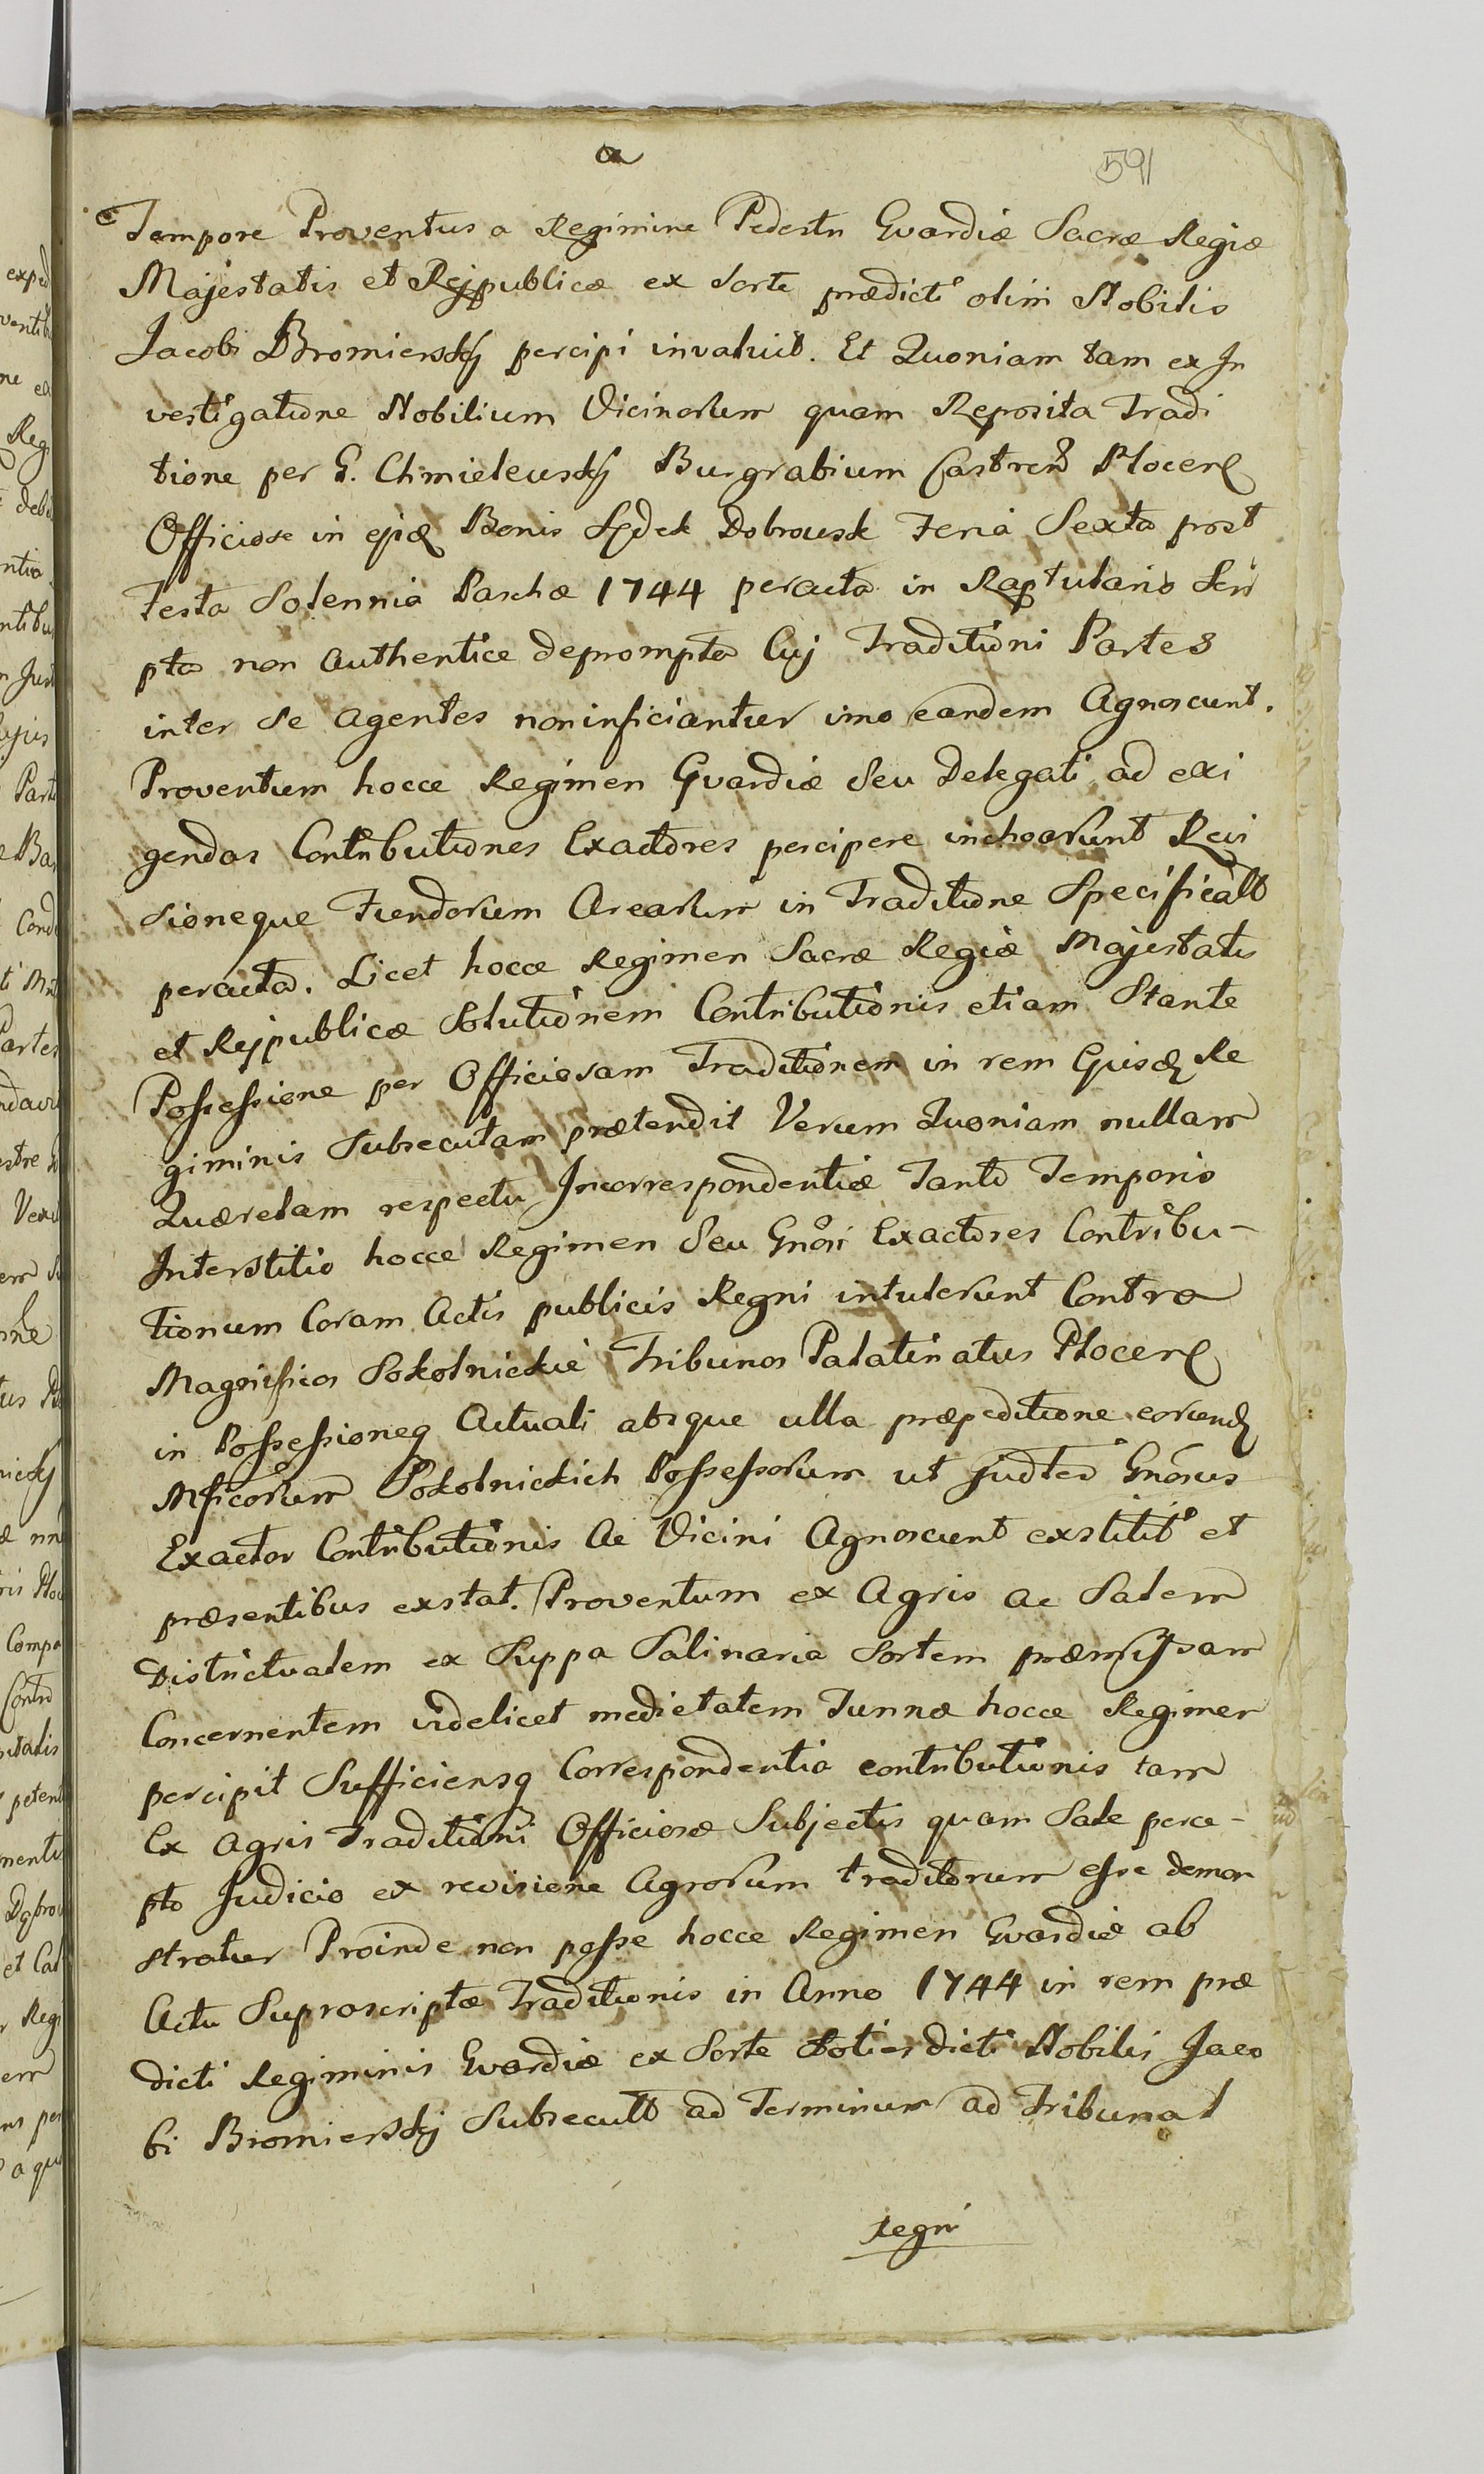 a
591
Tempore Proventus a Regimine Pedestri Gvardiæ Sacræ Regiæ
Majestatis et Rejpublicæ ex Sorte prædicti olim Nobilis
Jacobi Bromierskÿ percipi invaluit. Et Quoniam tam ex In
vestigatione Nobilium Vicinorum quam Reposita Tradi
tione per G. Chmielewskÿ Burgrabium Castren Plocen
Officiose in Bonis Dobrousk Feria Sexta post
Festa Solennia Paschæ 1744 peracta in Raptulario Scri
pta non Authentice deprompta Cuj Traditioni Partes
inter Se Agentes non inficiantur imo eandem Agnoscunt.
Proventum hocce Regimen Gvardiæ Seu Delegati ad exi
gendas Contributiones Exactores percipere inchoarunt Revi
sioneque Fundorum Arearum in Traditione Specificatt
peracta. Licet hocce Regimen Sacræ Regiæ Majestatis
et Rejpublicæ Solutionem Contributionis etiam Stante
Possessione per Officiosam Traditionem in rem Ejusd Re
giminis Subsecutam prætendit Verum Quoniam nullam
Quærelam respectu Incorrespondentiæ Tanto Temporis
Interstitio hocce Regimen Seu Gnosi Exactores Contribu-
tionum Coram Actis publicis Regni intulerunt Contra
Magnificos Sokolnickie Tribunos Palatinatus Plocen
in Possessioneq Actuali absque ulla præpeditione eorund
Mficorum Sokolnickich Possessorum ut Gnosus
Exactor Contributionis Ac Vicini Agnoscunt exstitit et
præsentibus exstat. Proventum ex Agris ac Salem
Districtualem ex Suppa Salinaria Sortem præmissam
Concernentem videlicet medietatem Tunnæ hocce Regimen
percipit Sufficiensq Correspondentia contributionis tam
Ex Agris Traditioni Officiosæ Subjectis quam Sale perce-
pto Judicio ex revisione Agrorum traditorum esse demon
stratur Proinde non posse hocce Regimen Gvardiæ ab
Actu Suprascriptæ Traditionis in Anno 1744 in rem præ
dicti Regiminis Gvardiæ ex Sorte toties dicti Nobilis Jaco
bi Bromierskÿ Subsecutt ad Terminum ad Tribunal
Regni